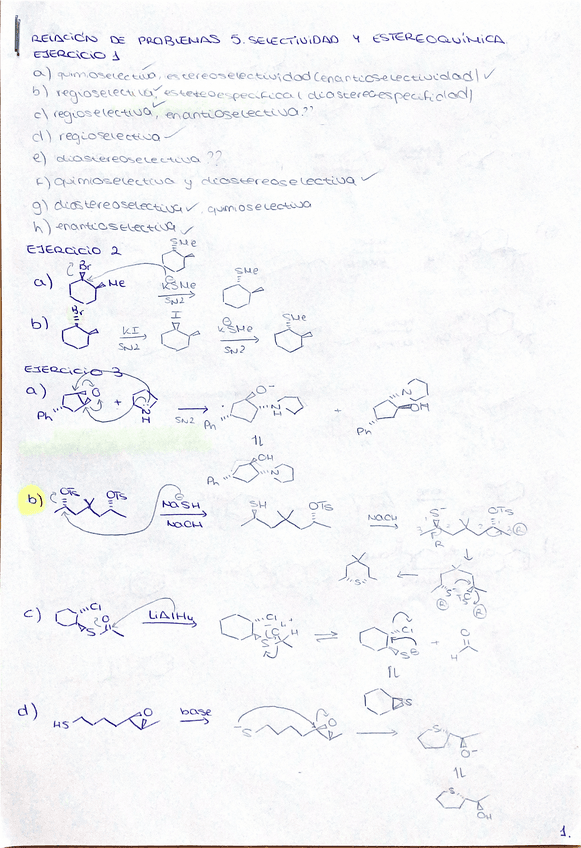 RELACIÓN DE PROBLEMAS 5. SELECTIVIDAD Y ESTEREOQUÍMICA.
EJERCICIO 1
a) quimioselectiva, estereoselectividad (enantioselectividad) ✓
b) regioselectiva, estereoespecífica (diastereoespecificidad)
c) regioselectiva, enantioselectiva??
d) regioselectiva ✓
e) diastereoselectiva ??
f) quimioselectiva y diastereoselectiva ✓
g) diastereoselectiva ✓, quimioselectiva
h) enantioselectiva ✓
EJERCICIO 2
a) Br Me SMe KSMe SN2 SMe
b) Br KI SN2 I KSMe SN2 SMe
EJERCICIO 3
a) Ph O + N H SN2 Ph O⁻ N H + Ph N OH
Ph OH N
b) OTs OTs NaSH NaOH SH OTs NaOH S⁻ OTs R R
S S TsO R R
c) Cl S O LiAlH4 Cl Li⁺ O H S ⇌ Cl S⊖ + O H
S
d) HS O base ⁻S O S O⁻
S OH
1.